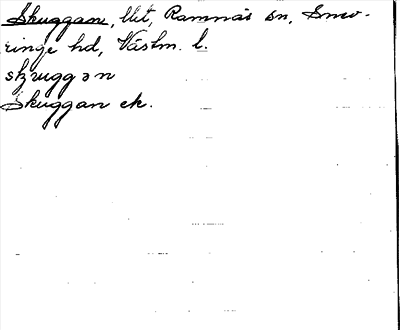 Skuggan, llt, Ramnäs sn, Snev-
ringe hd, Västm. l.
skuggən
Skuggan ek.